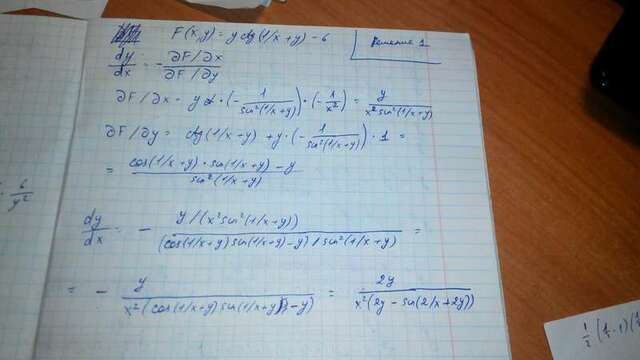 F(x,y) = y ctg(1/x+y) - 6
Решение 1
dy/dx = - ∂F/∂x / ∂F/∂y
∂F/∂x = y · (- 1/sin²(1/x+y)) · (- 1/x²) = y/(x² sin²(1/x+y))
∂F/∂y = ctg(1/x+y) + y · (- 1/sin²(1/x+y)) · 1 =
= (cos(1/x+y) · sin(1/x+y) - y)/sin²(1/x+y)
6/y²
dy/dx = - y/(x² sin²(1/x+y)) / (cos(1/x+y) sin(1/x+y) - y)/sin²(1/x+y) =
= - y/(x²(cos(1/x+y) sin(1/x+y) - y)) = 2y/(x²(2y - sin(2/x+2y)))